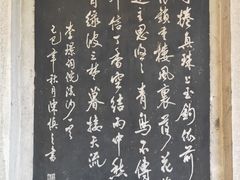 捲真珠上玉鉤依前
恨鎖重樓風裏落花
主思悠悠青鳥不傳
信丁香空結雨中愁
首綠波三楚暮接天流
李璟浣溪沙一首
己巳年秋月陳慎之書